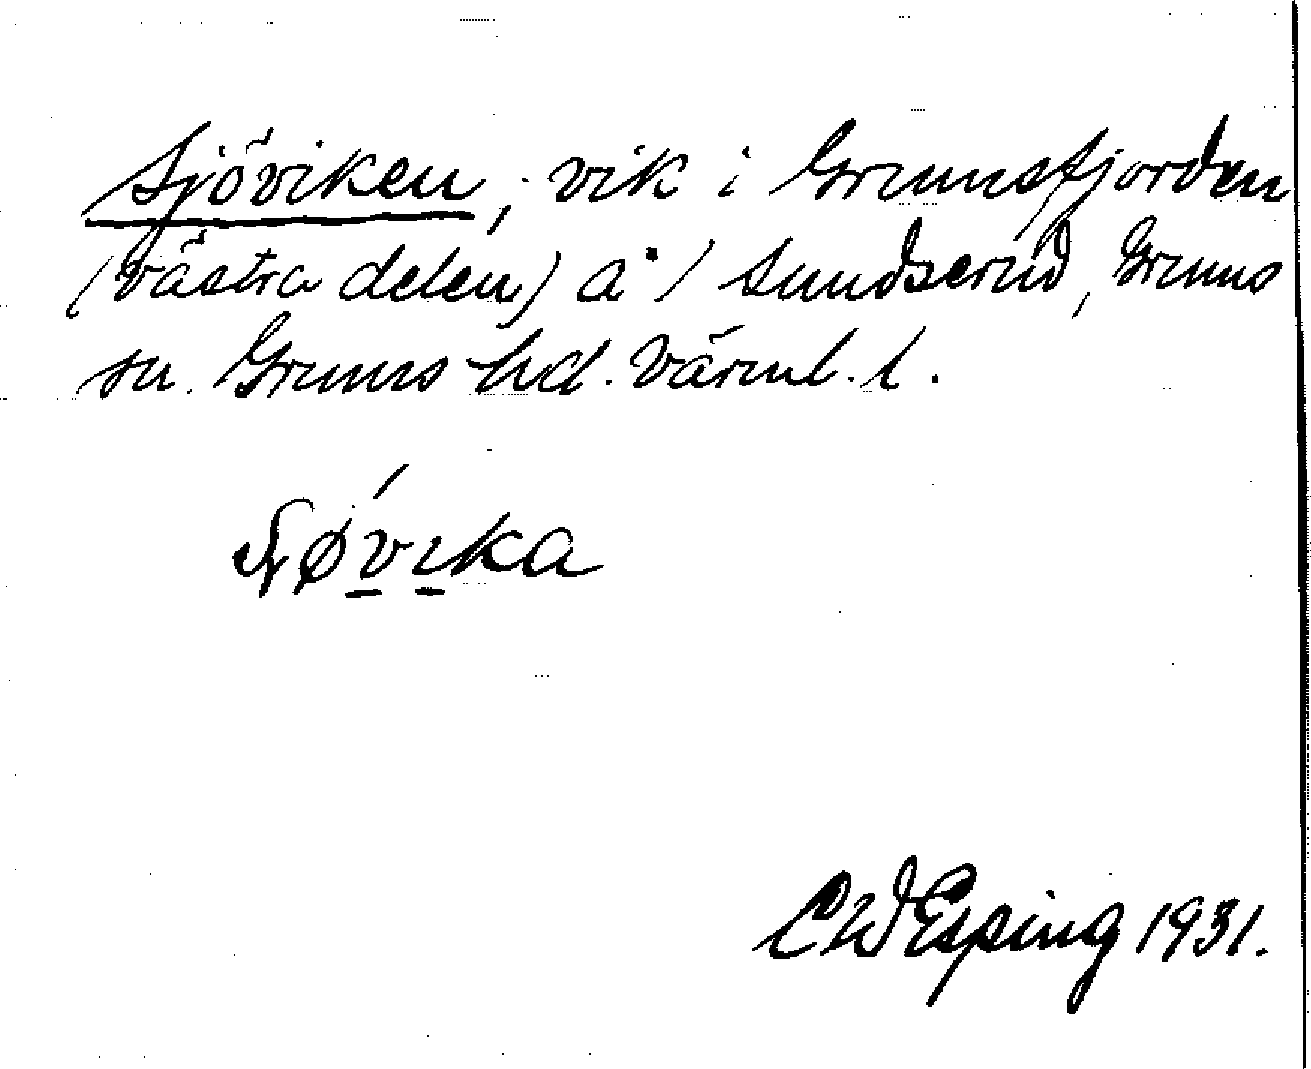 Sjöviken, vik i Grumsfjorden
(västra delen) å / Sundserud, Grums
sn. Grums hd. Värml. l.
vıka
C W Esping 1931.